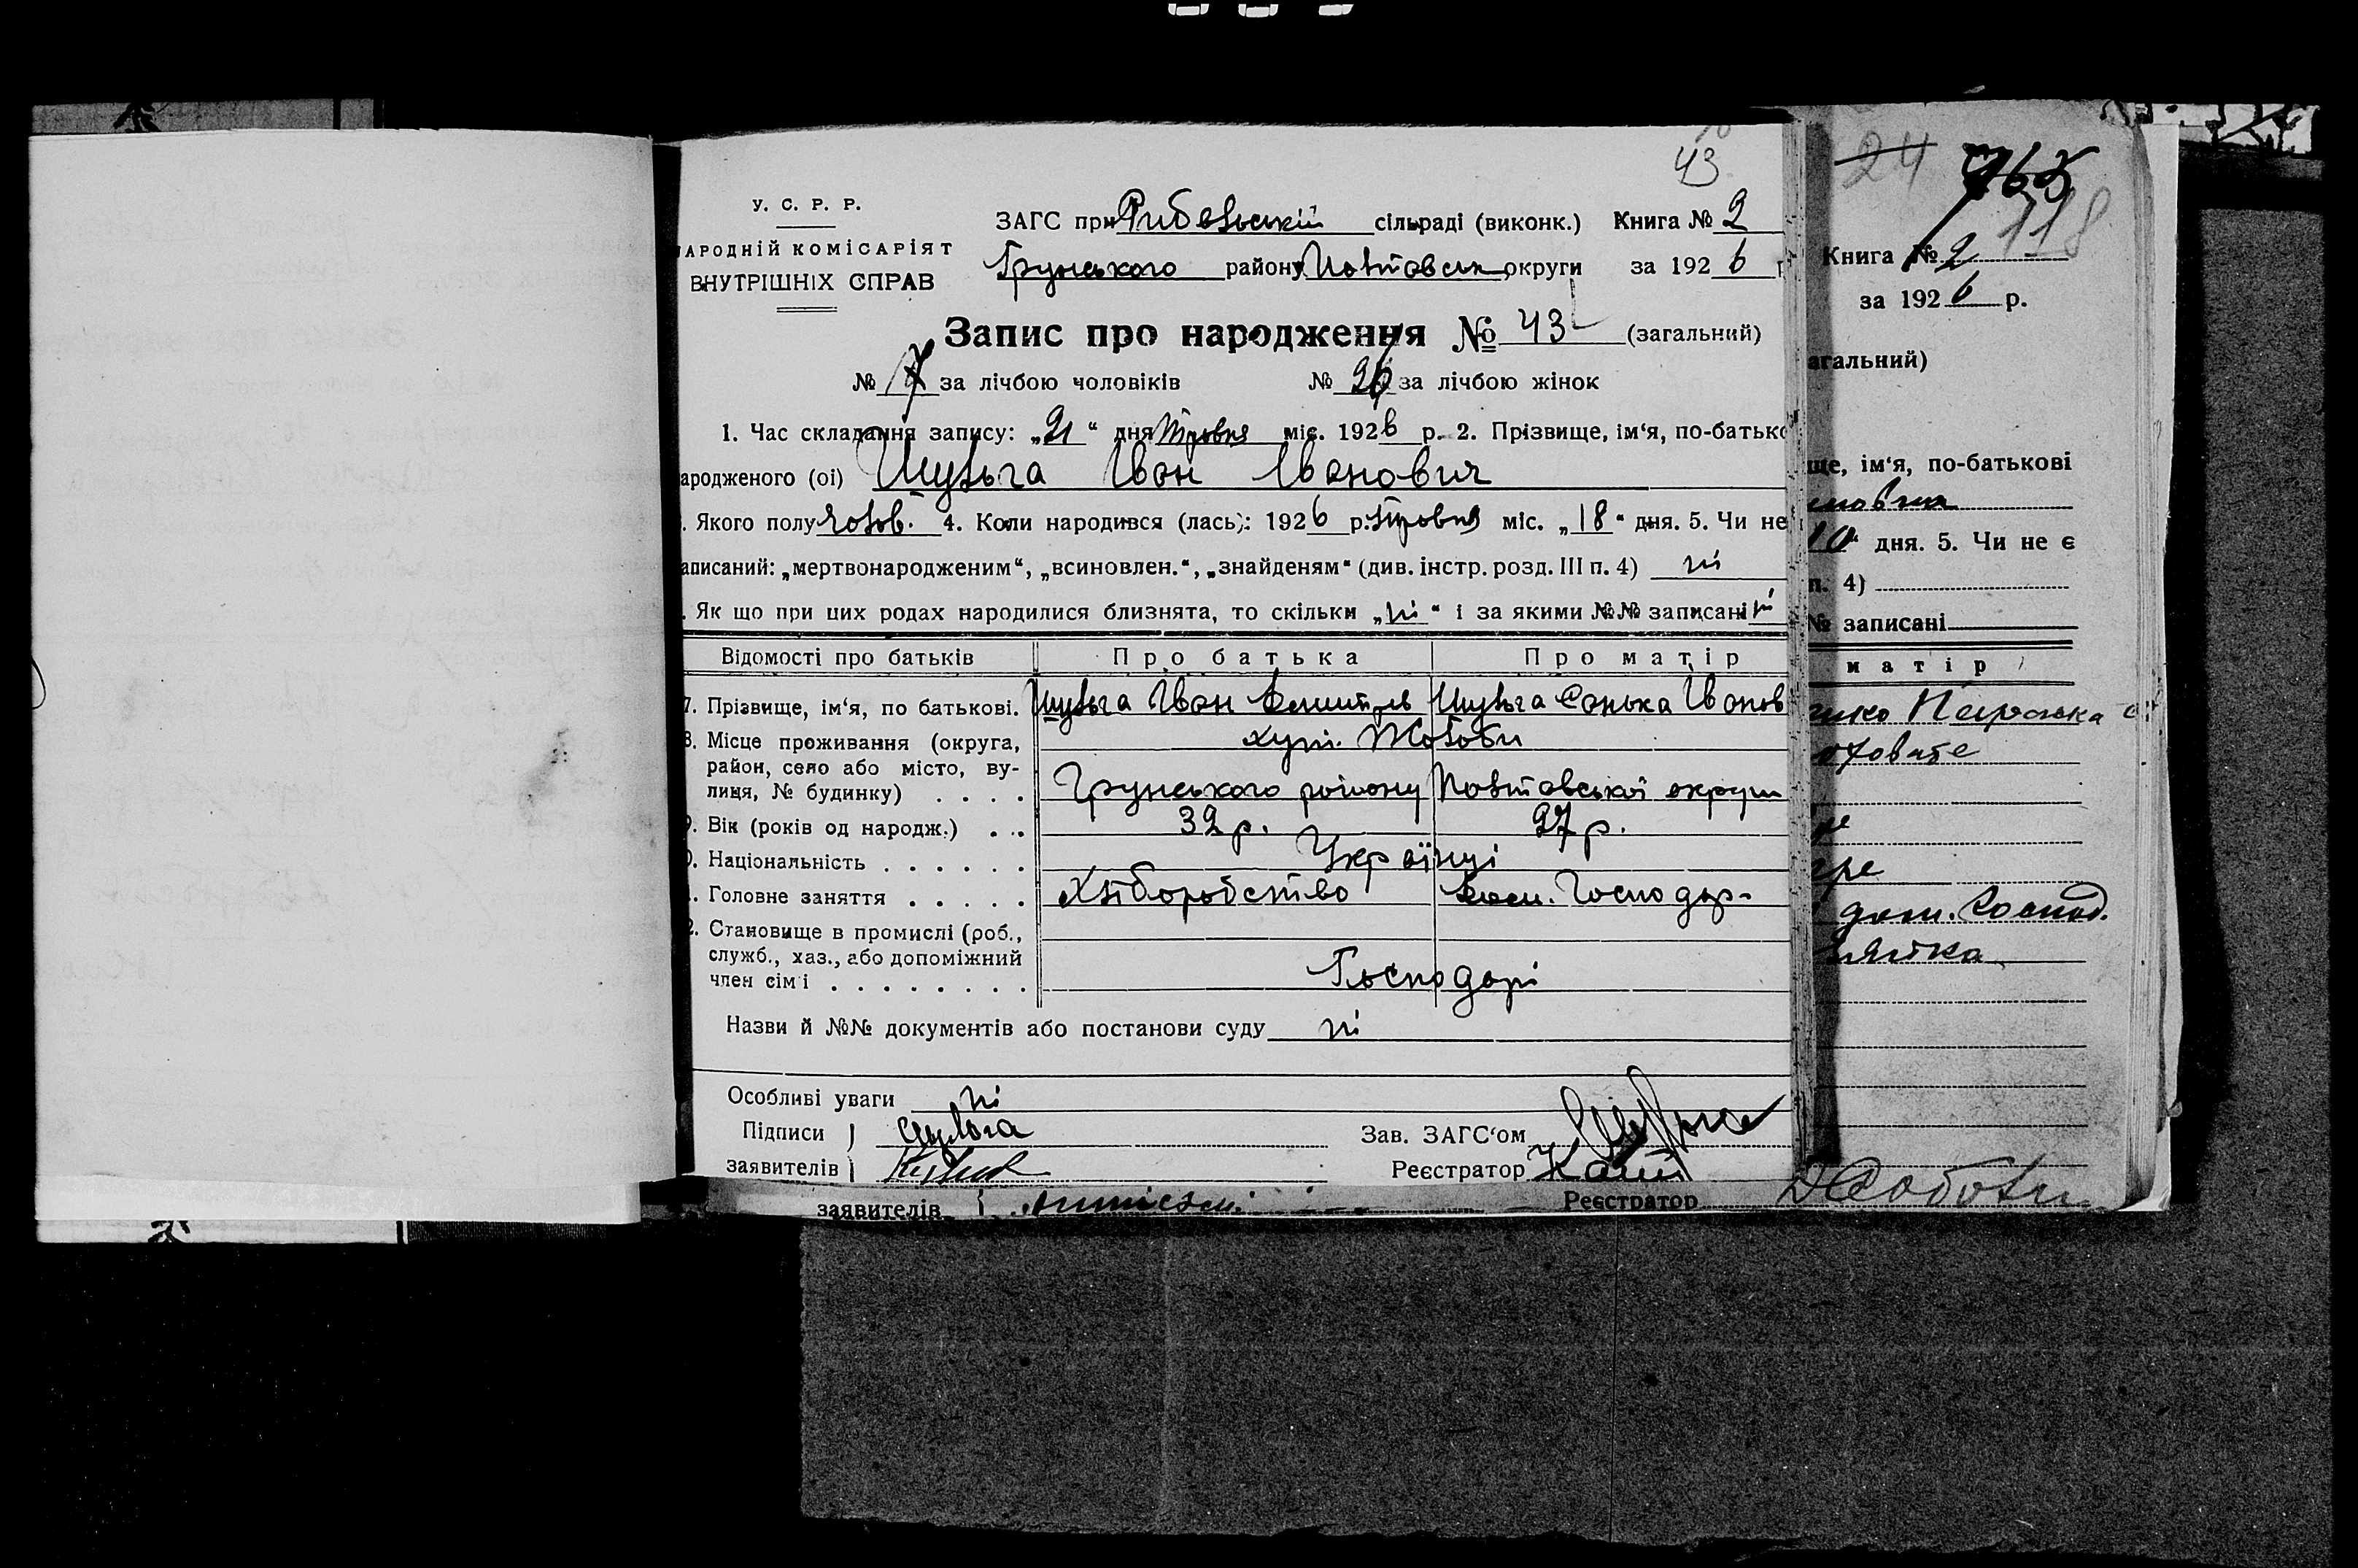 43
У. С. Р. Р.
НАРОДНІЙ КОМІСАРІЯТ
ВНУТРІШНІХ СПРАВ
ЗАГС при Рибальській сільраді (виконк.) Книга № 2
Грунського району Полтавськ округи за 1926 р
Запис про народження № 43 (загальний)
№ 17 за лічбою чоловіків № 26 за лічбою жінок
1. Час складання запису: „21“ дня травня міс. 1926 р. 2. Прізвище, ім‘я, по-батько
ародженого (ої) Шульга Іван Іванович
. Якого полу чолов. 4. Коли народився (лась): 1926 р. травня міс. „18“ дня. 5. Чи не
аписаний: „мертвонародженим“, „всиновлен.“, „знайденям“ (див. інстр. розд. III п. 4) ні
. Як що при цих родах народилися близнята, то скільки „ні“ і за якими №№ записані ні
Відомості про батьків Про батька Про матір
7. Прізвище, ім‘я, по батькові. Шульга Іван Шульга Санька Іванов
8. Місце проживання (округа, район, село або місто, вулиця, № будинку) . . . . хут. Жолоби
Грунського району Полтавської округи
9. Вік (років од народж.) . . . 32 р. 27 р.
0. Національність . . . . . . Українці
. Головне заняття . . . . . Хліборобство дом. Господар.
2. Становище в промислі (роб.,
служб., хаз., або допоміжний
член сім‘ї . . . . . . . . Господарі
Назви й №№ документів або постанови суду ні
Особливі уваги ні
Підписи ) Шульга
заявителів )
Зав. ЗАГС‘ом
Реєстратор
заявителів Реєстратор
24 118
Книга № 2
за 1926 р.
агальний)
ще, ім‘я, по-батькові
10“ дня. 5. Чи не є
п. 4)
№ записані
матір
дом. Господ.